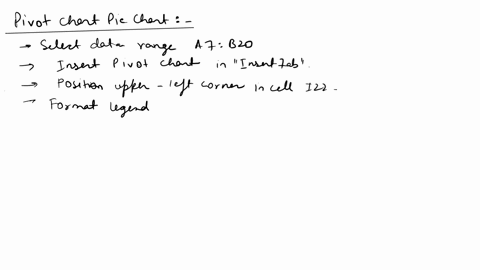 Pivot Chart Pie Chart :-
→ Select data range A7:B20
→ Insert Pivot chart in "Insert Tab".
→ Position upper-left corner in cell I22.
→ Format legend